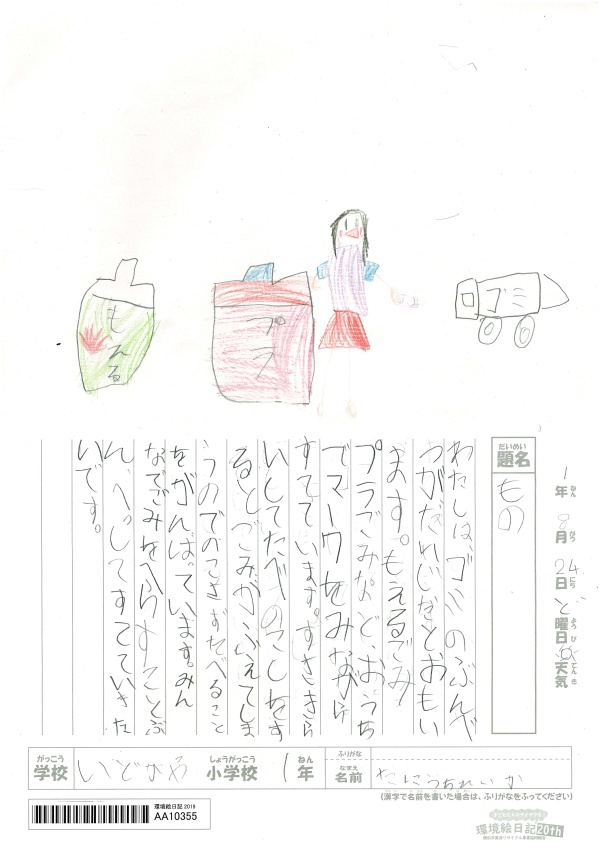 もえる
プラ
ゴミ
1年 8月 24日 ど曜日 天気
ねん がつ にち ようび てんき
だいめい
題名
もの
わたしは、ゴミのぶんべ
つがだいじだとおもい
ます。もえるごみ
プラごみなど、おうち
でマークをみながら
すてています。すききら
いしてたべのこしをす
るとごみがふえてしま
うのでのこさずたべること
をがんばっています。みん
なでごみをへらすことぶ
ん、べつしてすてていきた
いです。
がっこう しょうがっこう ねん ふりがな
学校 いどがや 小学校 1年
なまえ
名前
(漢字で名前を書いた場合は、ふりがなをふってください)
環境絵日記 2019
AA10355
環境絵日記20th